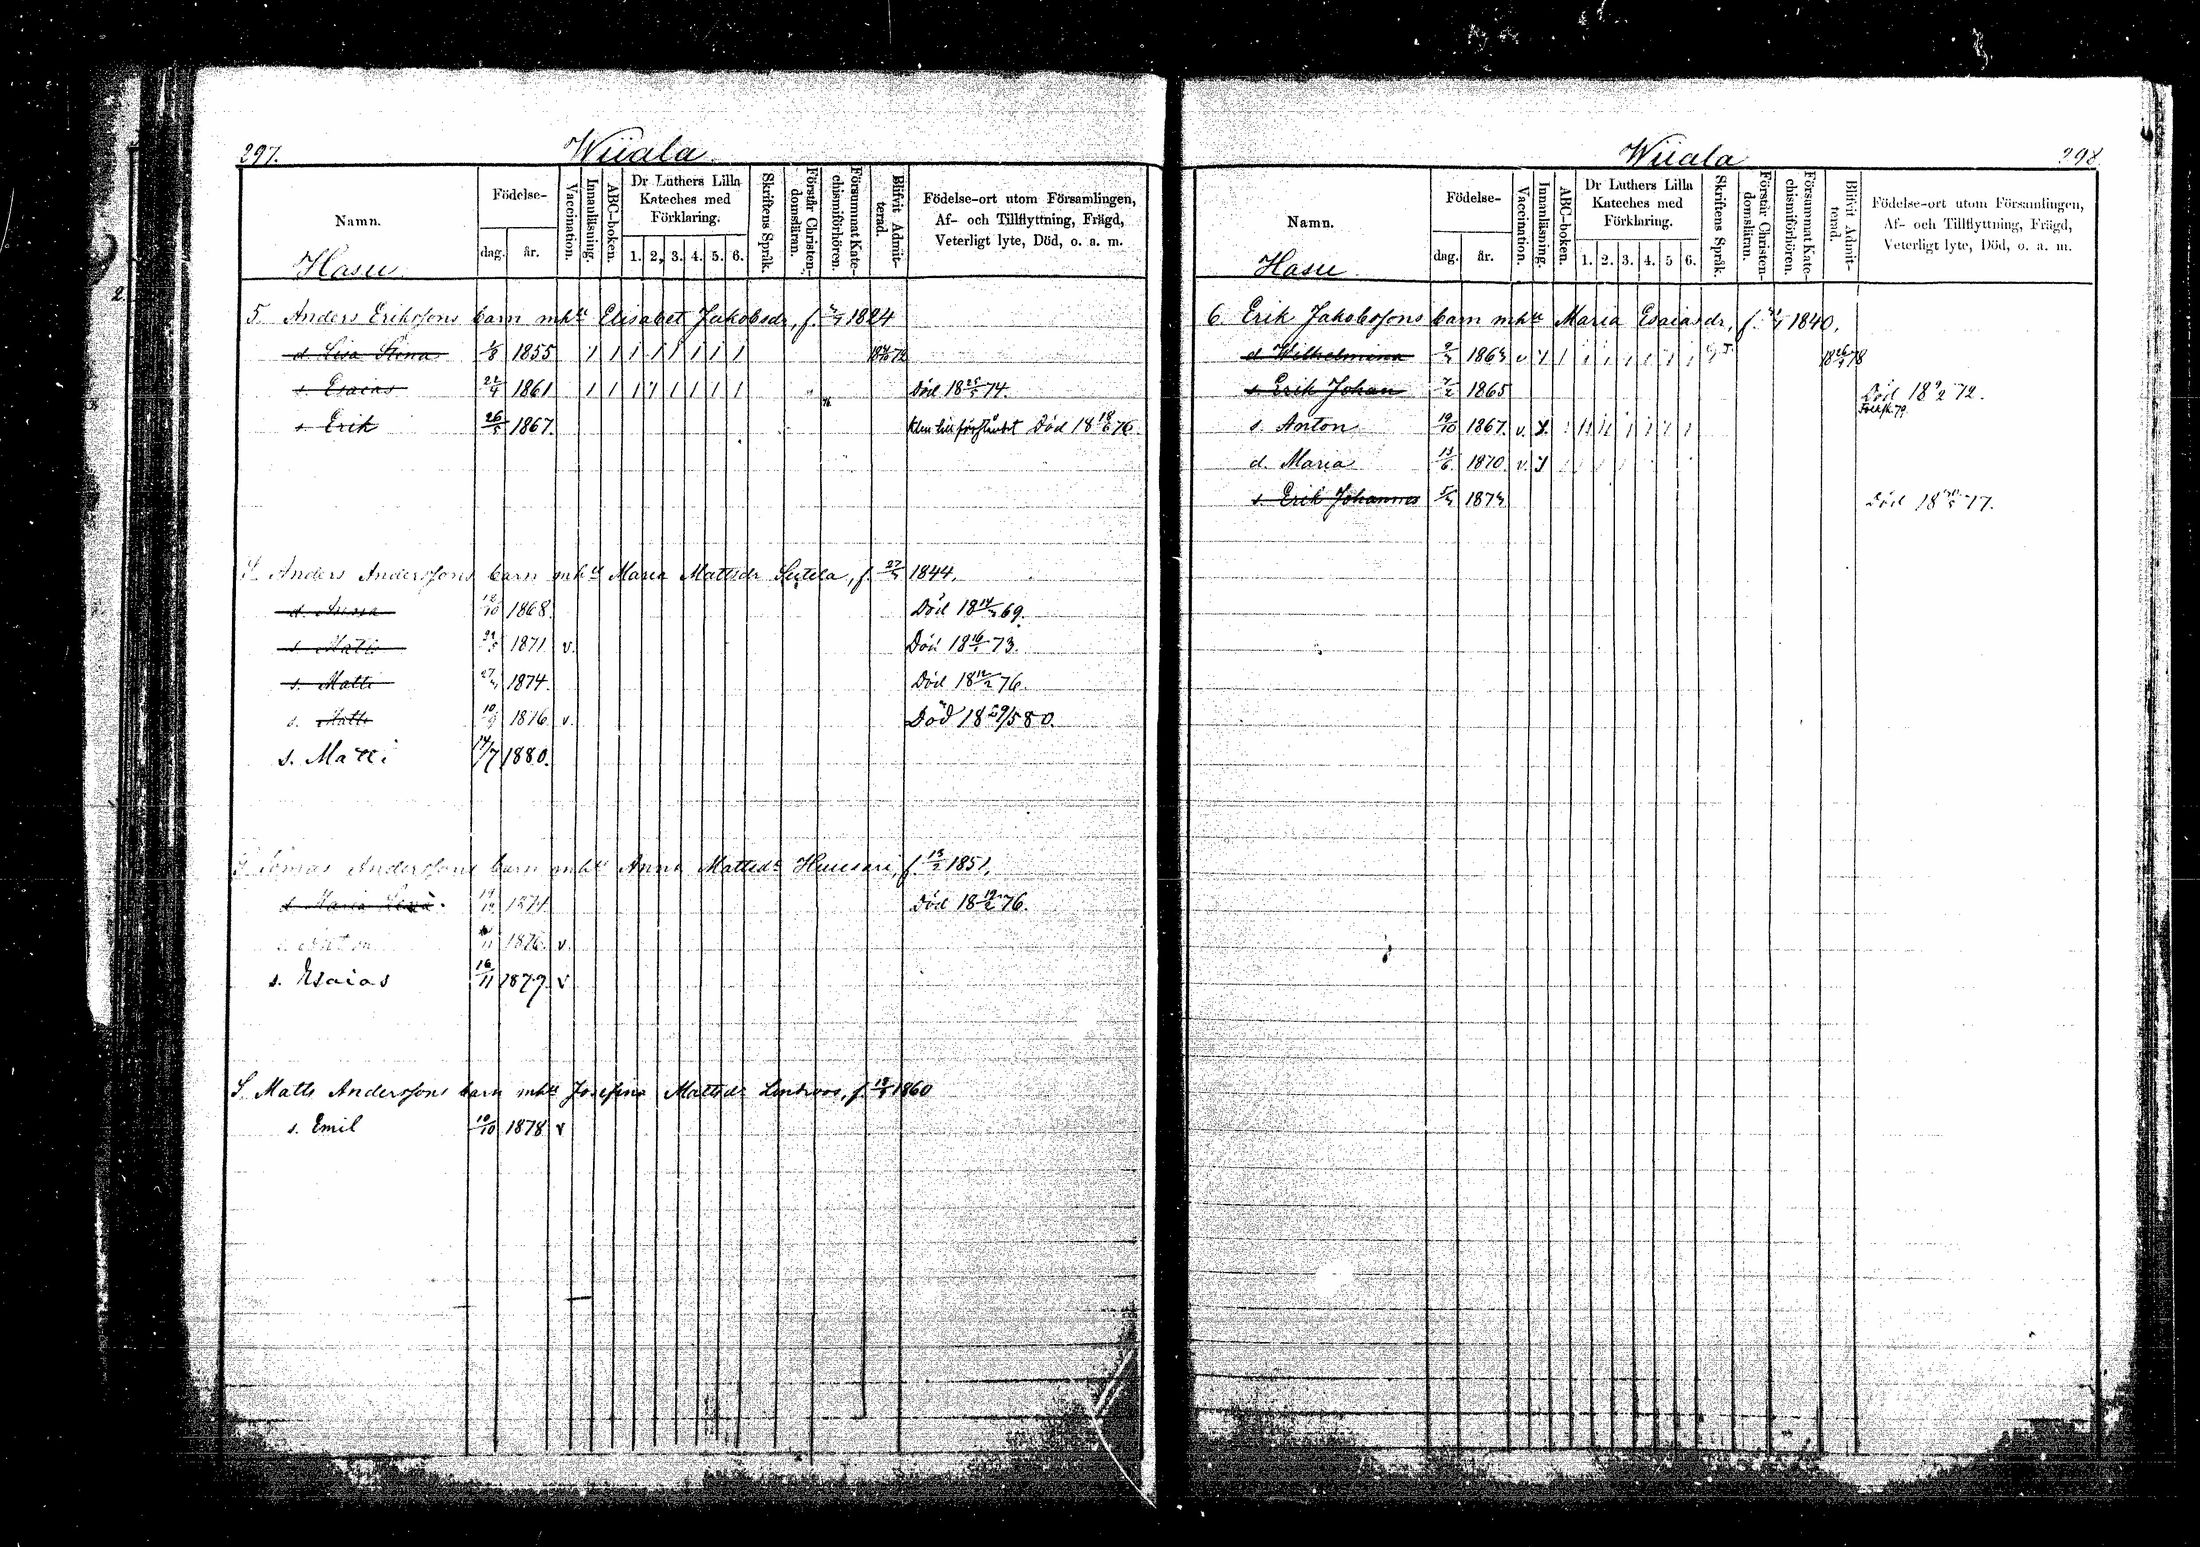 297.
Wiiala
Namn.
Födelse-
dag.
år.
Vaccination.
Innanläsning.
ABC-boken.
Dr Luthers Lilla
Kateches med
Förklaring.
1. 2. 3. 4. 5. 6.
Skriftens Språk.
Förstår Christen-
domsläran.
Försummat Kate-
chismiförhören.
Blifvit Admit-
terad.
Födelse-ort utom Församlingen,
Af- och Tillflyttning, Frägd,
Veterligt lyte, Död, o. a. m.
Hasu
5. Anders Erikssons barn mhu Elisabet Jakobsdr, f. 1824
d Lisa Stena 1/8 1855 1 1 1 1 1 1 1 1
s. Esaias 22/4 1861 1 1 1 1 1 1 1 1 Död 18 74.
s Erik 1867. Klen till förståndet Död 18 18/6 76
S Anders Anderssons barn mhu Maria Mattsdr, f. 1844.
d. 12/10 1868. Död 18 69.
s. 1871 v. Död 18 73.
s. Matti 1874. Död 18 12/2 76.
s. Matti 1876 v. Död 18 29/5 80.
s. Matti 14/7 1880.
S Tomas Anderssons barn mhu Anna Mattsdr, f. 13/2 1851.
d Maria 1871 Död 18 19/2 76.
s. Anton 1876 v.
s. Esaias 16/11 1879 v
S. Matts Anderssons barn mhu Josefina Mattsdr Lindroos, f. 1860
s. Emil 10/10 1878 v
Wiiala
298
Namn.
Födelse-
dag.
år.
Vaccination.
Innanläsning.
ABC-boken.
Dr Luthers Lilla
Kateches med
Förklaring.
1. 2. 3. 4. 5 6.
Skriftens Språk.
Förstår Christen-
domsläran.
Försummat Kate-
chismiförhören.
Blifvit Admit-
terad.
Födelse-ort utom Församlingen,
Af- och Tillflyttning, Frägd,
Veterligt lyte, Död, o. a. m.
Hasu
6. Erik Jakobssons barn mhu Maria Esaiasdr, f. 1840.
d Wilhelmina 1863 v
s. Erik Johan 7/2 1865 Död 18 9/2 72.
s. Anton 19/10 1867. v.
d. Maria 13/6 1870 v.
s. Erik Johannes 1873 Död 18 77.